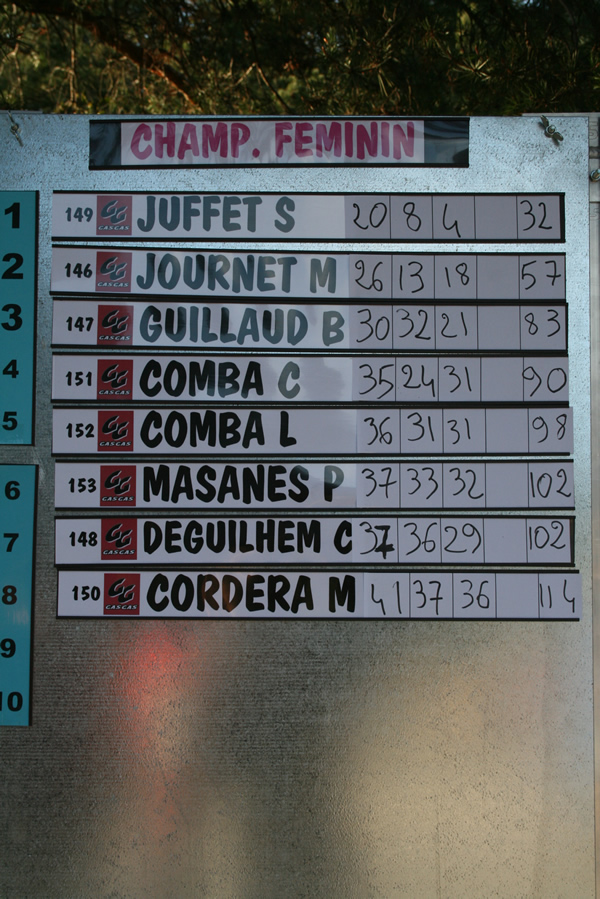 CHAMP. FEMININ
1 149 GG CASCAS JUFFET S 20 8 4 32
2 146 GG CASCAS JOURNET M 26 13 18 57
3 147 GG CASCAS GUILLAUD B 30 32 21 83
4 151 GG CASCAS COMBA C 35 24 31 90
5 152 GG CASCAS COMBA L 36 31 31 98
6 153 GG CASCAS MASANES P 37 33 32 102
7 148 GG CASCAS DEGUILHEM C 37 36 29 102
8 150 GG CASCAS CORDERA M 41 37 36 114
9
10